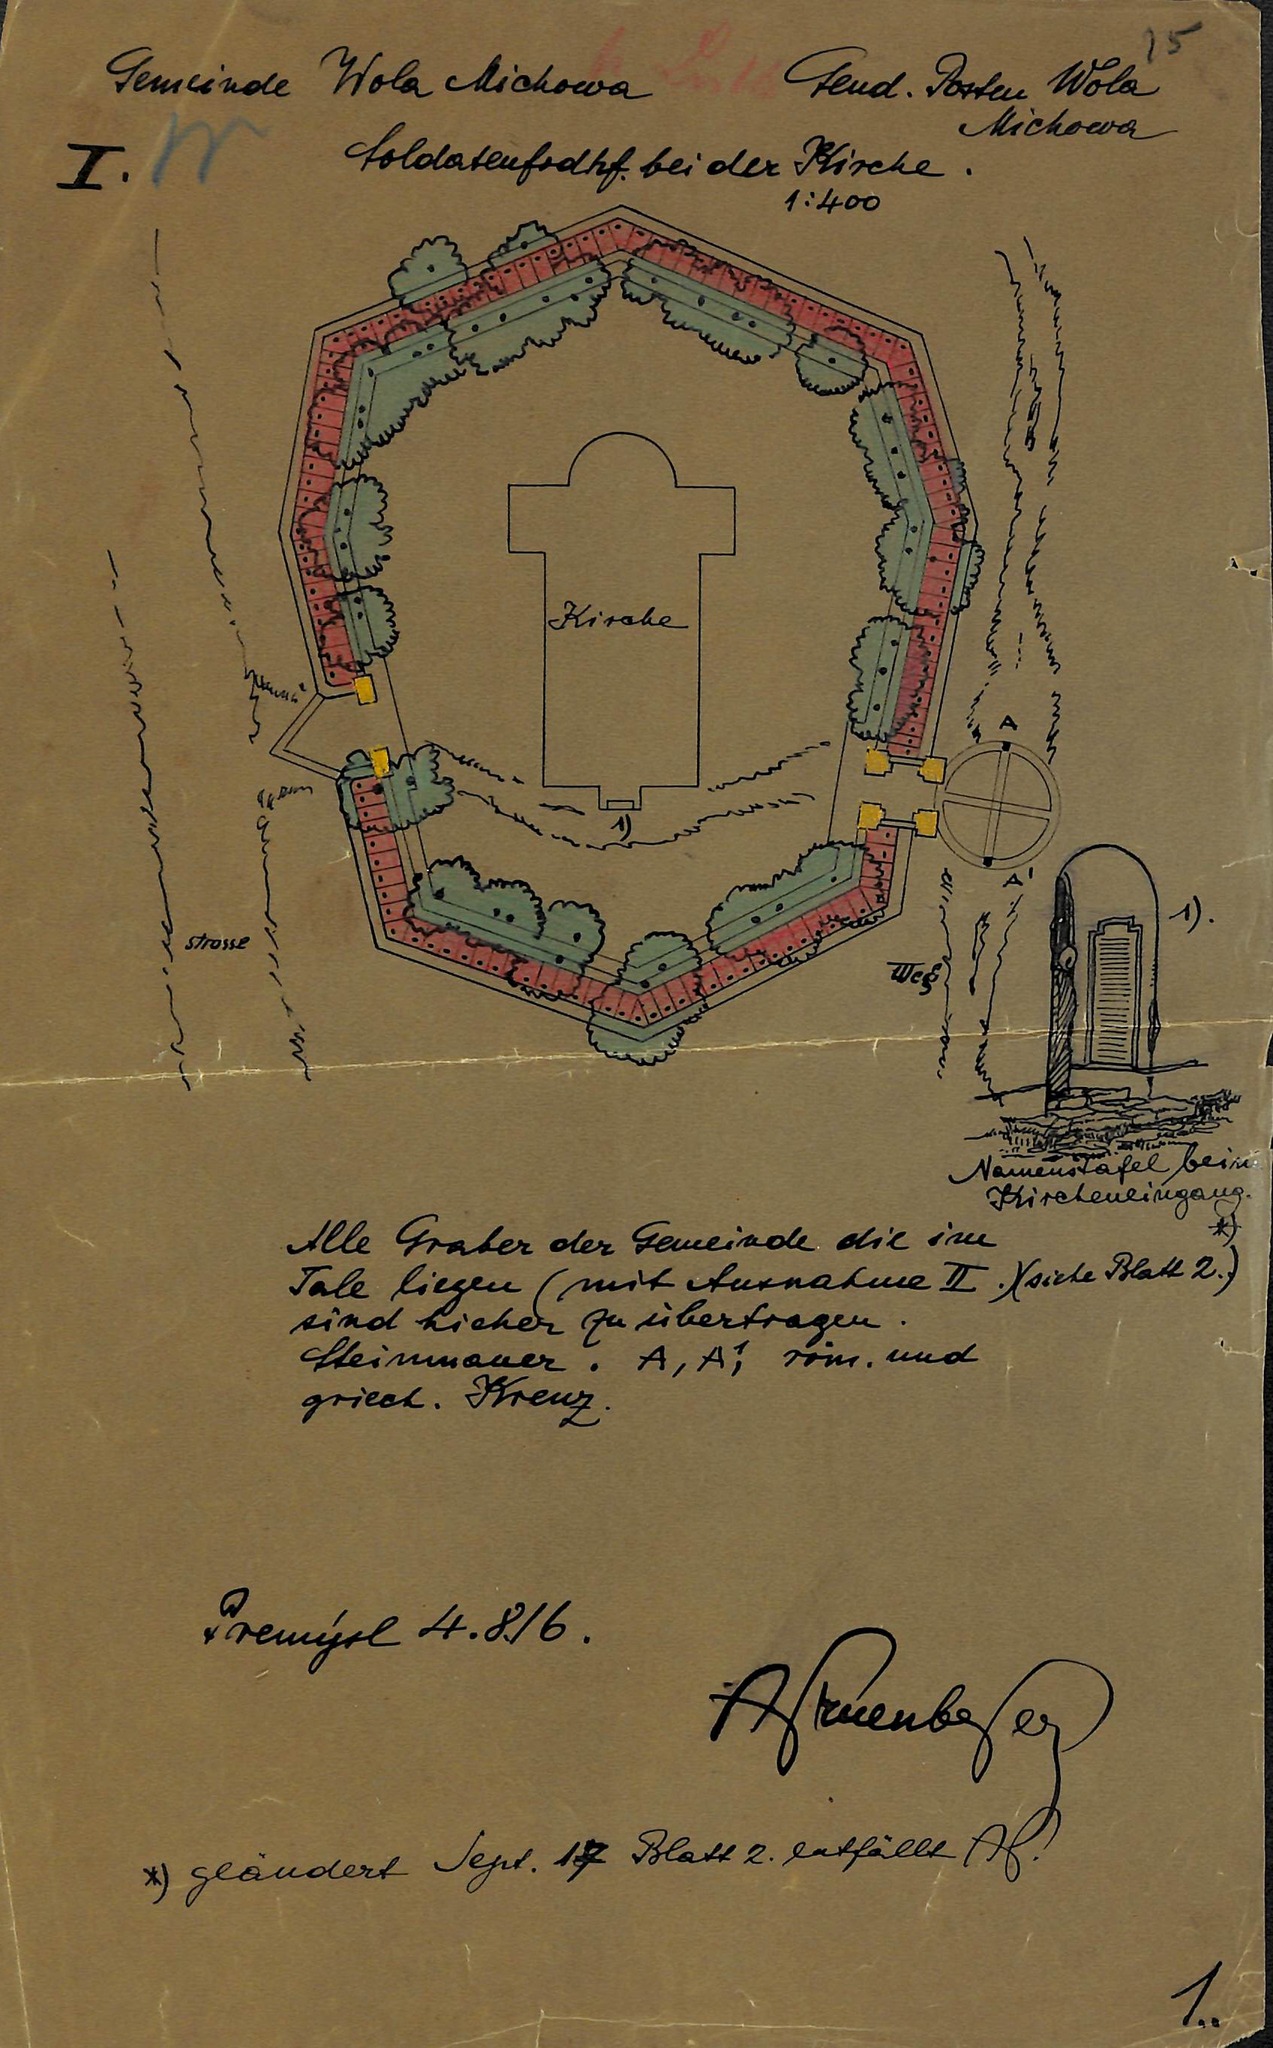 15
Gemeinde Wola Michowa
Gend. Posten Wola
Michowa
I.
Soldatenfrdhf. bei der Kirche.
1:400
Kirche
1)
A
A'
1).
strasse
Weg
Namenstafel beim
Kircheneingang.
*)
Alle Graber der Gemeinde die im
Tale liegen (mit Ausnahme II.)(siehe Blatt 2.)
sind hieher zu übertragen.
Steinmauer. A, A', röm. und
griech. Kreuz.
Premýsl 4.8.16.
*) geändert Sept. 17 Blatt 2. entfällt
1.